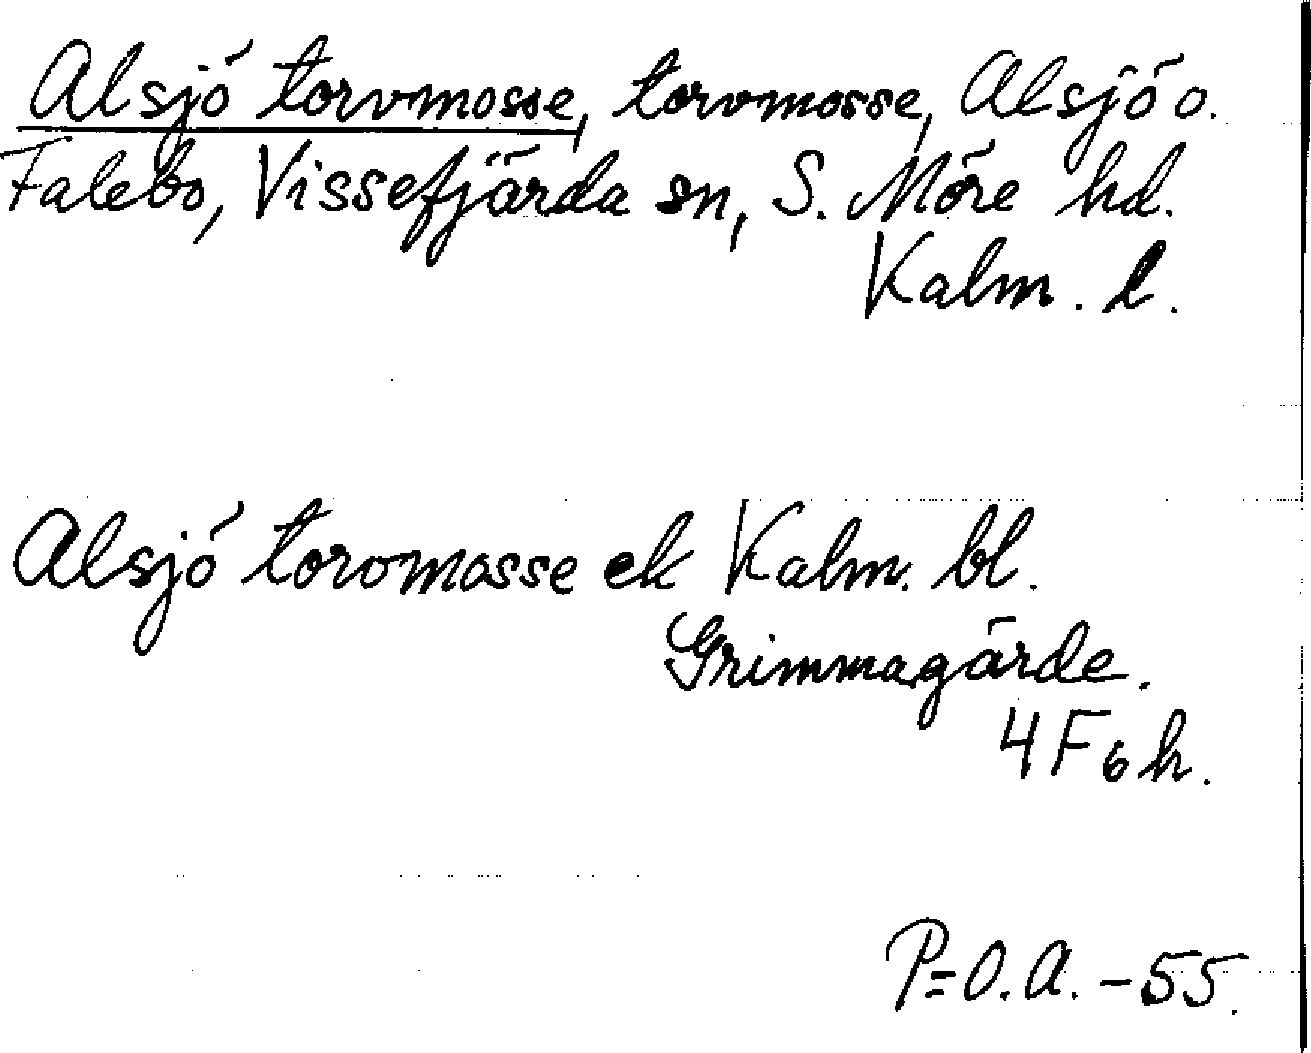 Alsjö torvmosse, torvmosse, Alsjö o.
Falebo, Vissefjärda sn, S. Möre hd.
Kalm. l.
Alsjö torvmosse ek Kalm. bl.
Grimmagärde.
4F6h.
P=O.A. -55.